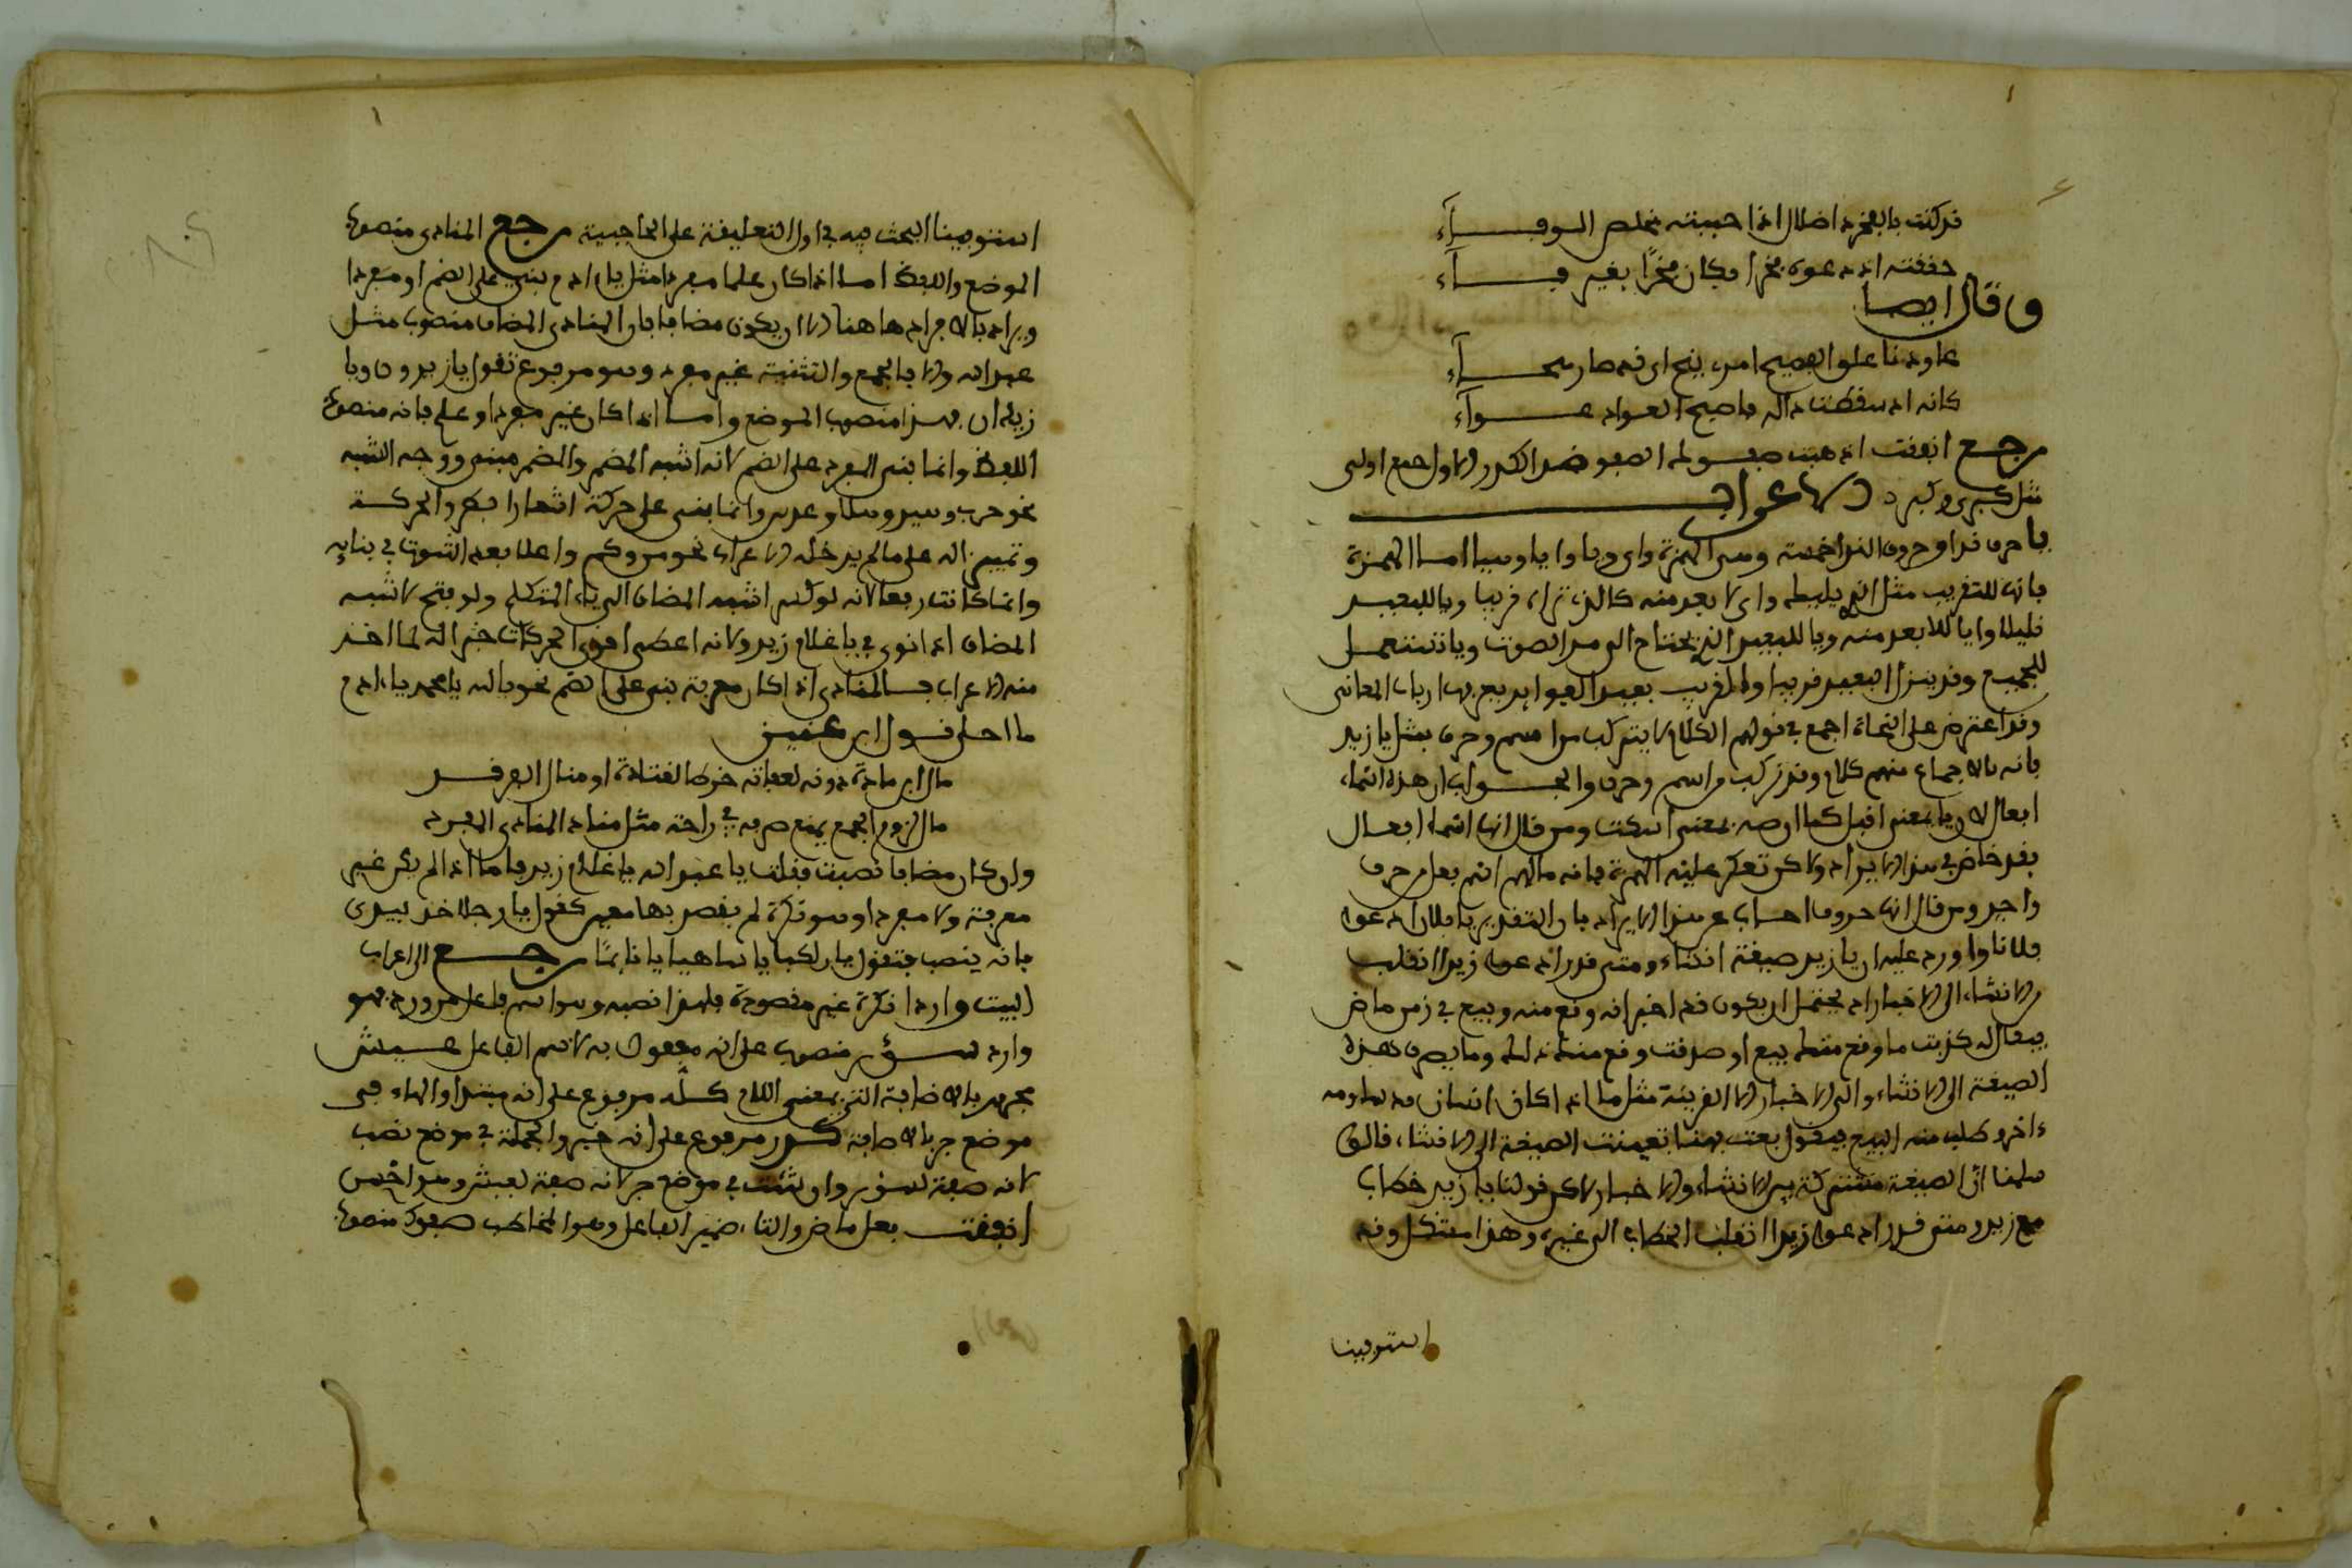 قد كنت بالفخر إذ اضلال اذا حبيته بخلص الوفـــاء
حققته اذ دعوه فخرا فكان فخرًا بغير فـــاء
وقال ايضا
عاودنا علو الصبح امر بنح اى فد صار سحـــراء
كانه اذ سقطت داله فاصبح العواد عـــواء
رجع انفقت اذهبت صفـوك الصفو ضد الكدر الاول جمع اولى
مثل كبرى وكبر د الاعراب
يا حرف ندا وحروف الندا خمسة وهى الهمزة واى ويا وايا وهيا اما الهمزة
فانها للتقريب مثل الذى يليك واى لا بعد منه كالذى تراه قريبا ويا للبعيد
قليلا وايا للابعد منه وهيا للبعيد الذى يحتاج الى مد الصوت ويا تستعمل
للجميع وقد ينزل البعيد قريبا والقريب بعيدا لفوايد يعرفها ارباب المعانى
وقد اعترض على النحاة اجمع فى قولهم الكلام لا يتركب من اسم وحرف بمثل يا زيد
فانه بالاجماع منهم كلام وقد تركب من اسم وحرف والجـــواب ان هذه اسماء
افعال لان يا بمعنى اقبل كما ان صه بمعنى اسكت ومن قال انها اسماء افعال
فقد خلص فى هذا الايراد ولاكن تعكر عليه الهمزة فانه ما لهم اسم فعل من حرف
واحد ومن قال انها حروف اجاب عن هذا الايراد بان التقدير يا فلان ادعو
فلانا واورد عليه ان يا زيد صيغة انشاء ومتى قدر ادعو زيدا انقلب
الانشاء الى الاخبار اذ يحتمل ان يكون قد اخبر انه وقع منه وبيع فى زمن ماض
فيقال له كذبت ما وقع منك بيع او صدقت وقع منك ذلك وما يصرف هذه
الصيغة الى الانشاء والى الاخبار الا القرينة مثل ما اذا كان انسان قد ساومه
ءاخر وطلب منه البيع فيقول بعت فهنا تعينت الصيغة الى الانشاء، قالوا
سلمنا ان الصيغة مشتركة بين الانشاء والاخبار لاكن قولنا يا زيد خطاب
مع زيد ومتى قدر ادعو زيدا انقلب الخطاب الى غيره وهذا مشكل وقد
استوفينا
استوفينا البحث فيه فى اول التعليقة على الحاجبية رجع المنادى منصوب
الموضع واللفظ اما اذا كان علما مفردا مثل يا ادم بنى على الضم او مفردا
ويراد بالافراد هاهنا الا ان يكون مضافا فان المنادى المضاف منصوب مثل
عبد الله والا فالجمع والتثنية غير مفرد وهو مرفوع تقول يا زيدون ويا
زيدان فهذا منصوب الموضع واما اذا كان غير مفرد او علم فانه منصوب
اللفظ وانما بنى المفرد على الضم لانه اشبه المضمر والمضمر مبنى ووجه الشبه
نحو حرب وسير وسلا وعدد وانما بنى على حركة اشعارا بطرو الحركة
وتمييز اله على ما لم يدخله الاعراب نحو من وكم واعلا بعدم الثبوت فى بنايه
وانما كانت رفعا لانه لو كسر اشبه المضاف الى ياء المتكلم ولو فتح لاشبه
المضاف اذ انوى فى يا غلام زيد ولانه اعطى اقوى الحركات جبرا له لما اخذ
منه الاعراب فالمنادى اذا كان معرفة بنى على الضم نحو يا الله يا محمد يا ادم
ما احلى قـــول ابن عنين
مال ابن مارة دونه لعفاته خرط القتادة او منال الفرقـــد
مال لزوم الجمع يمنع صرفه فى راحة مثل مناد المنادى المفـرد
وان كان مضافا نصبت فقلت يا عبد الله يا غلام زيد فاما اذا لم يكن غير
معرفة ولا مفردا وهو نكرة لم يقصد بها معين كقول يا رجلا خذ بيدى
فانه ينصب فتقول يا راكبا يا ساهيا يا نايمًا رجـــع الى اعراب
البيت واردا نكرة غير مقصودة فلهذا نصبه وهو اسم فاعل من ورد فهو
وارد ســـؤر منصوب على انه مفعول به لاسم الفاعل عـــيش
مجرور بالاضافة التى بمعنى اللام كـــله مرفوع على انه مبتدا والهاء فى
موضع جر بالاضافة كـــدر مرفوع على انه خبر والجملة فى موضع نصب
لانه صفة لسؤر وان شئت فى موضع جر لانه صفة لعيش وهو احسن
انفقت فعل ماض والتاء ضمير الفاعل وهو المخاطب صفوك منصوب